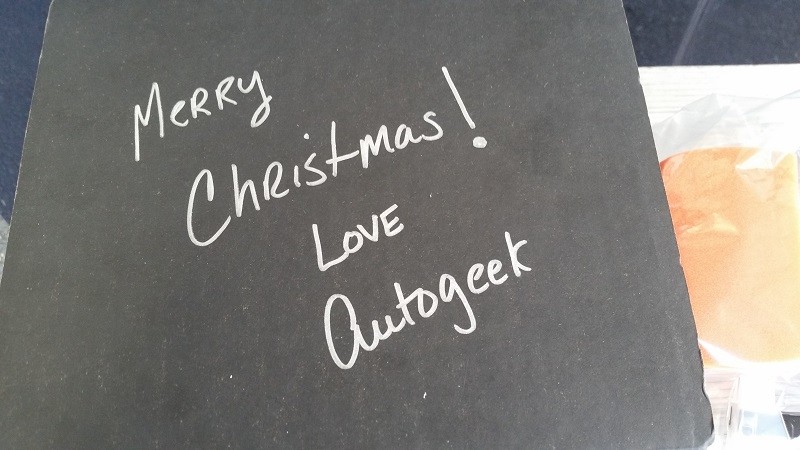 Merry
Christmas!
Love
Autogeek